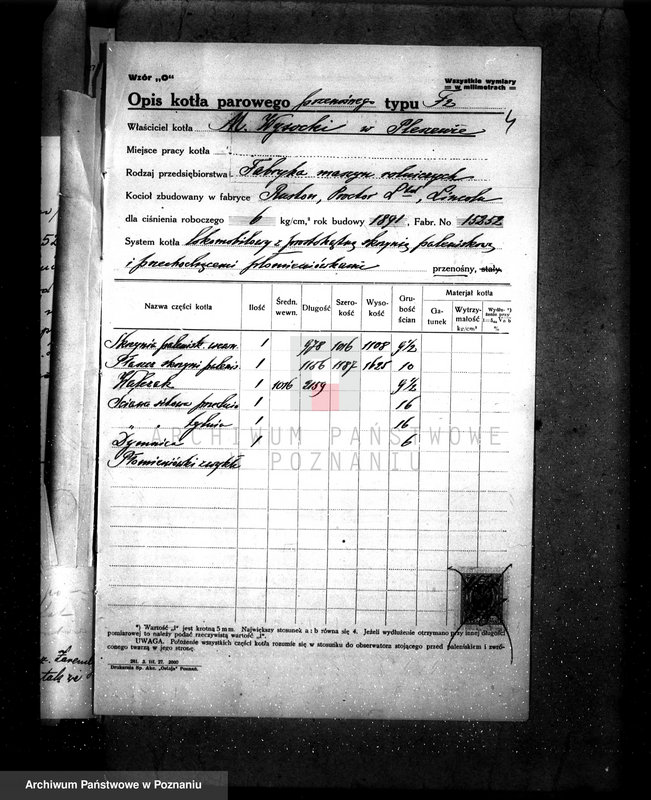 Wzór „O“
Wszystkie wymiary
w milimetrach
Opis kotła parowego przenośnego typu
4
Właściciel kotła M. Wysocki w Pleszewie
Miejsce pracy kotła
Rodzaj przedsiębiorstwa Fabryka maszyn rolniczych
Kocioł zbudowany w fabryce Ruston, Proctor Ltd, Lincoln
dla ciśnienia roboczego 6 kg/cm,² rok budowy 1891, Fabr. No 15252
System kotła lokomobilowy z prostokątną skrzynią paleniskową
i przechodzącemi płomieniówkami przenośny, stały.
Nazwa części kotła Ilość Średn. wewn. Długość Szerokość Wysokość Grubość ścian Materjał kotła
Gatunek Wytrzymałość kg/cm² %
Skrzynia palenisk. wewn. 1 978 1016 1108 9½
Płaszcz skrzyni palenis. 1 1156 1187 1625 10
Walczak 1 1016 2159 9½
Ściana sitowa przednia 1 16
„ „ tylnia 1 16
Dymnica 1 6
Płomieniówki zwykłe
ARCHIWUM PAŃSTWOWE
W POZNANIU
*) Wartość „l“ jest krotną 5 mm. Największy stosunek a : b równa się 4. Jeżeli wydłużenie otrzymano przy innej długości
pomiarowej to należy podać rzeczywistą wartość „l“.
UWAGA. Położenie wszystkich części kotła rozumie się w stosunku do obserwatora stojącego przed paleniskiem i zwróconego twarzą w jego stronę.
Drukarnia Sp. Akc. „Ostoja“ Poznań.
Archiwum Państwowe w Poznaniu